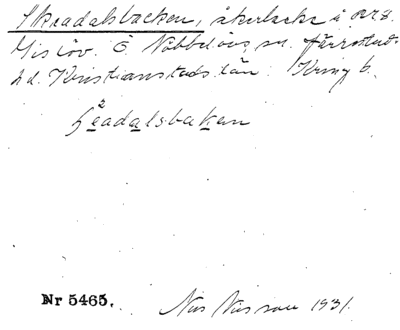 Skeadalsbacken, åkerbacke i nr 8
Gislöv. Ö Nöbbelövs sn. Järrestads
hd. Kristianstads län. Kring b.
ʃɛadalsbakan
Nr 5465.
Nils Nilsson 1931.